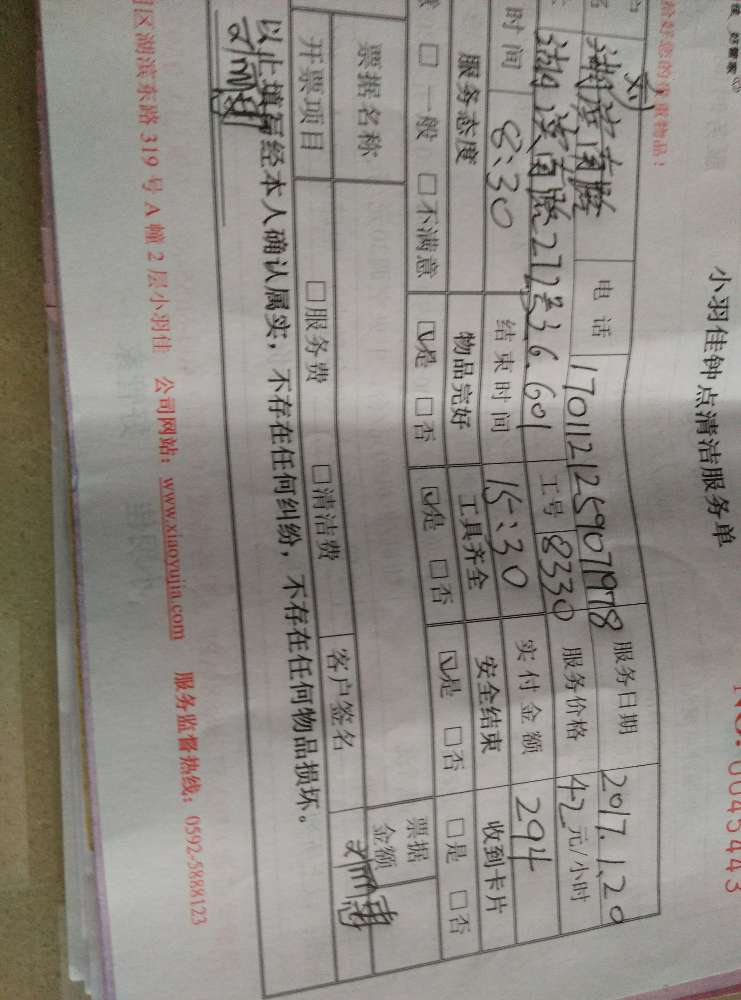 好管家
给好您的贵重物品！
小羽佳钟点清洁服务单
NO. 0045443
刘
湖滨南路 电话 1701121259071978 服务日期 2017.1.20
湖滨南路272号36.601 工号 8330 服务价格 42元/小时
时间 8:30 结束时间 15:30 实付金额 294
服务态度 物品完好 工具齐全 安全结束 收到卡片
□一般 □不满意 ☑是 □否 ☑是 □否 ☑是 □否 □是 □否
票据名称 票据金额
开票项目 □服务费 □清洁费 客户签名
以上填写经本人确认属实，不存在任何纠纷，不存在任何物品损坏。
区湖滨东路319号A幢2层小羽佳 公司网站：www.xiaoyujia.com 服务监督热线：0592-5888123